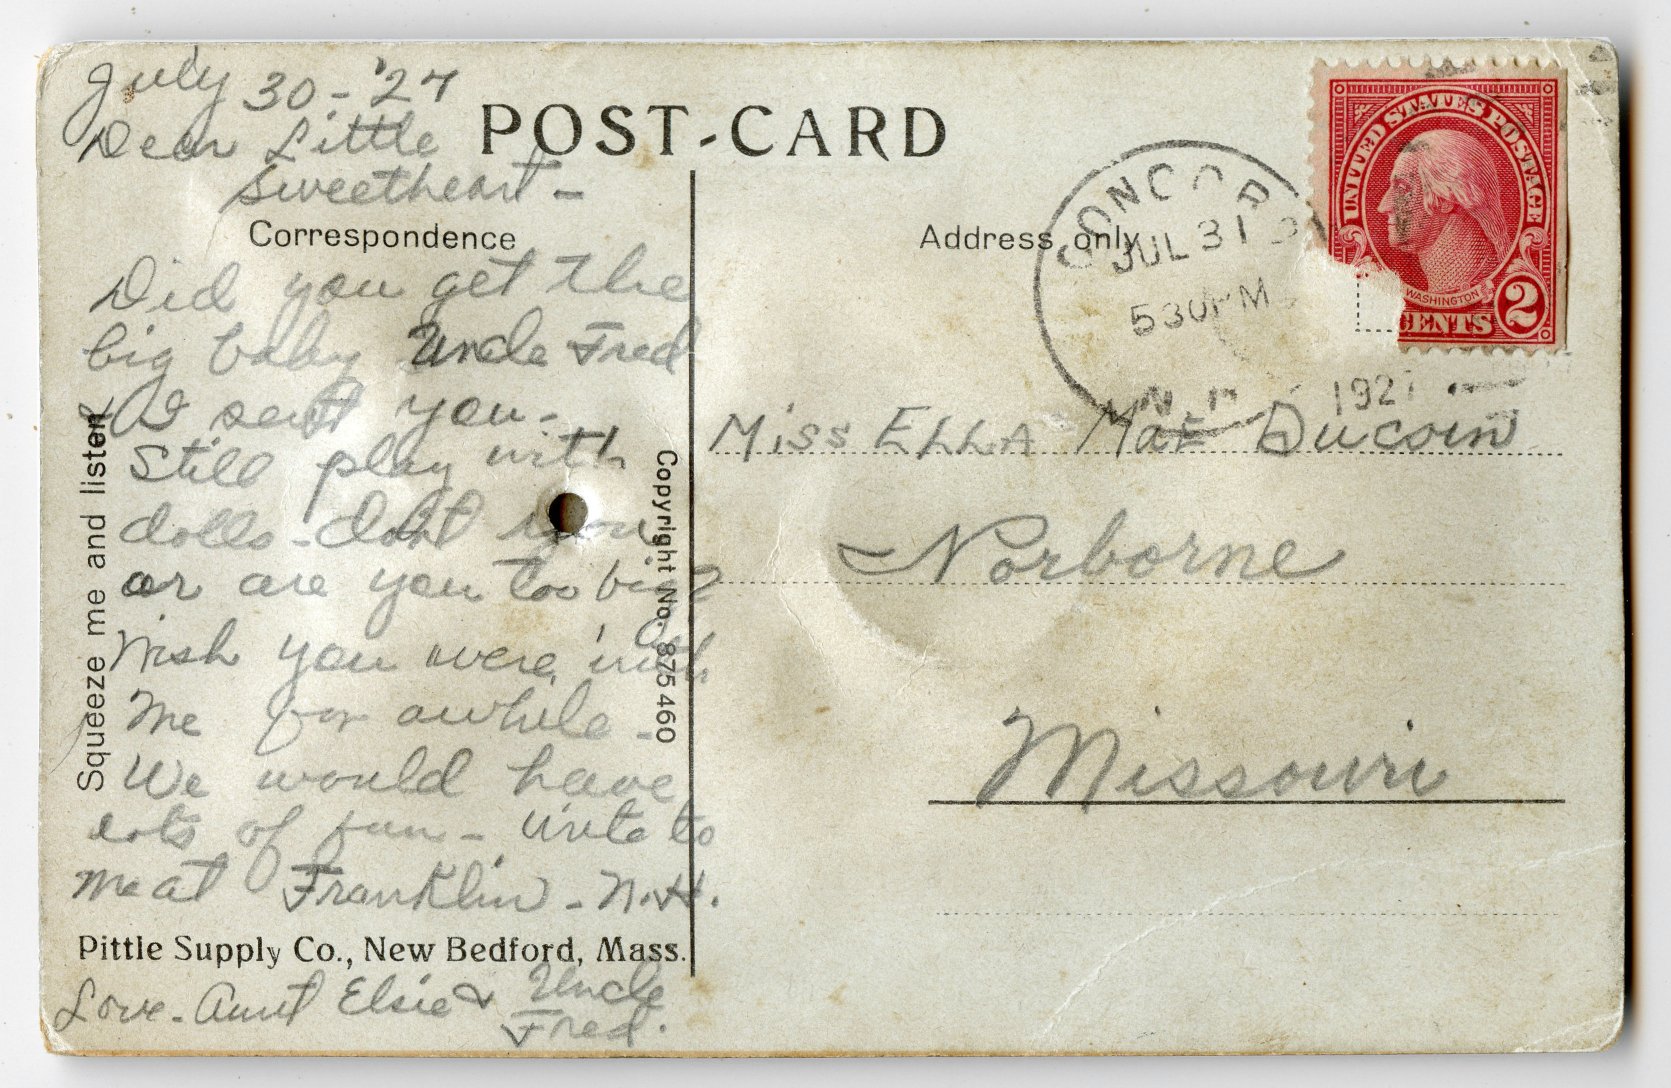 July 30-'27
Dear Little
Sweetheart-
POST-CARD
Correspondence
Did you get the
big baby Uncle Fred
& I sent you-
Still play with
dolls-don't you
or are you too big?
Wish you were with
Me for awhile-
We would have
lots of fun- write to
me at Franklin-N.H.
Pittle Supply Co., New Bedford, Mass.
Love-Aunt Elsie & Uncle
Fred.
Squeeze me and listen
Copyright No. 875460
Address only
CONCOR
JUL 31
530PM
N.H.
1927
UNITED STATES POSTAGE
WASHINGTON
CENTS 2
Miss ELLA MaE Ducoin
Norborne
Missouri